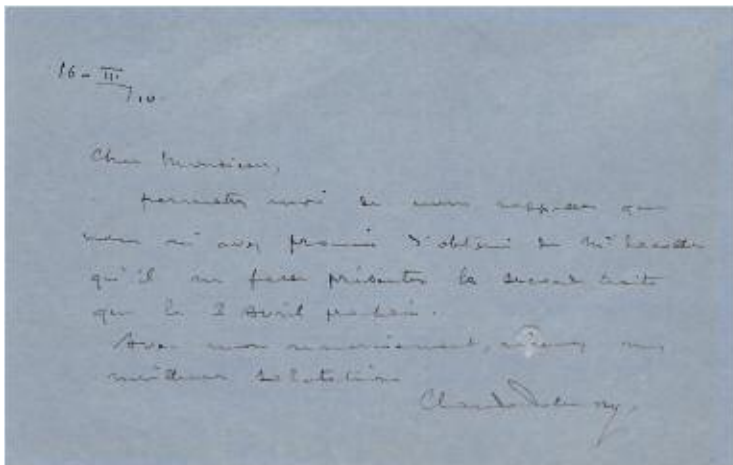 16 - III
/10
Cher Monsieur,
permettez moi de vous rappeler que
vous m'avez promis d'obtenir de Mr
qu'il ne fasse présenter la seconde traite
que le 2 Avril prochain.
Avec mon remerciement, recevez mes
meilleures salutations
Claude Debussy